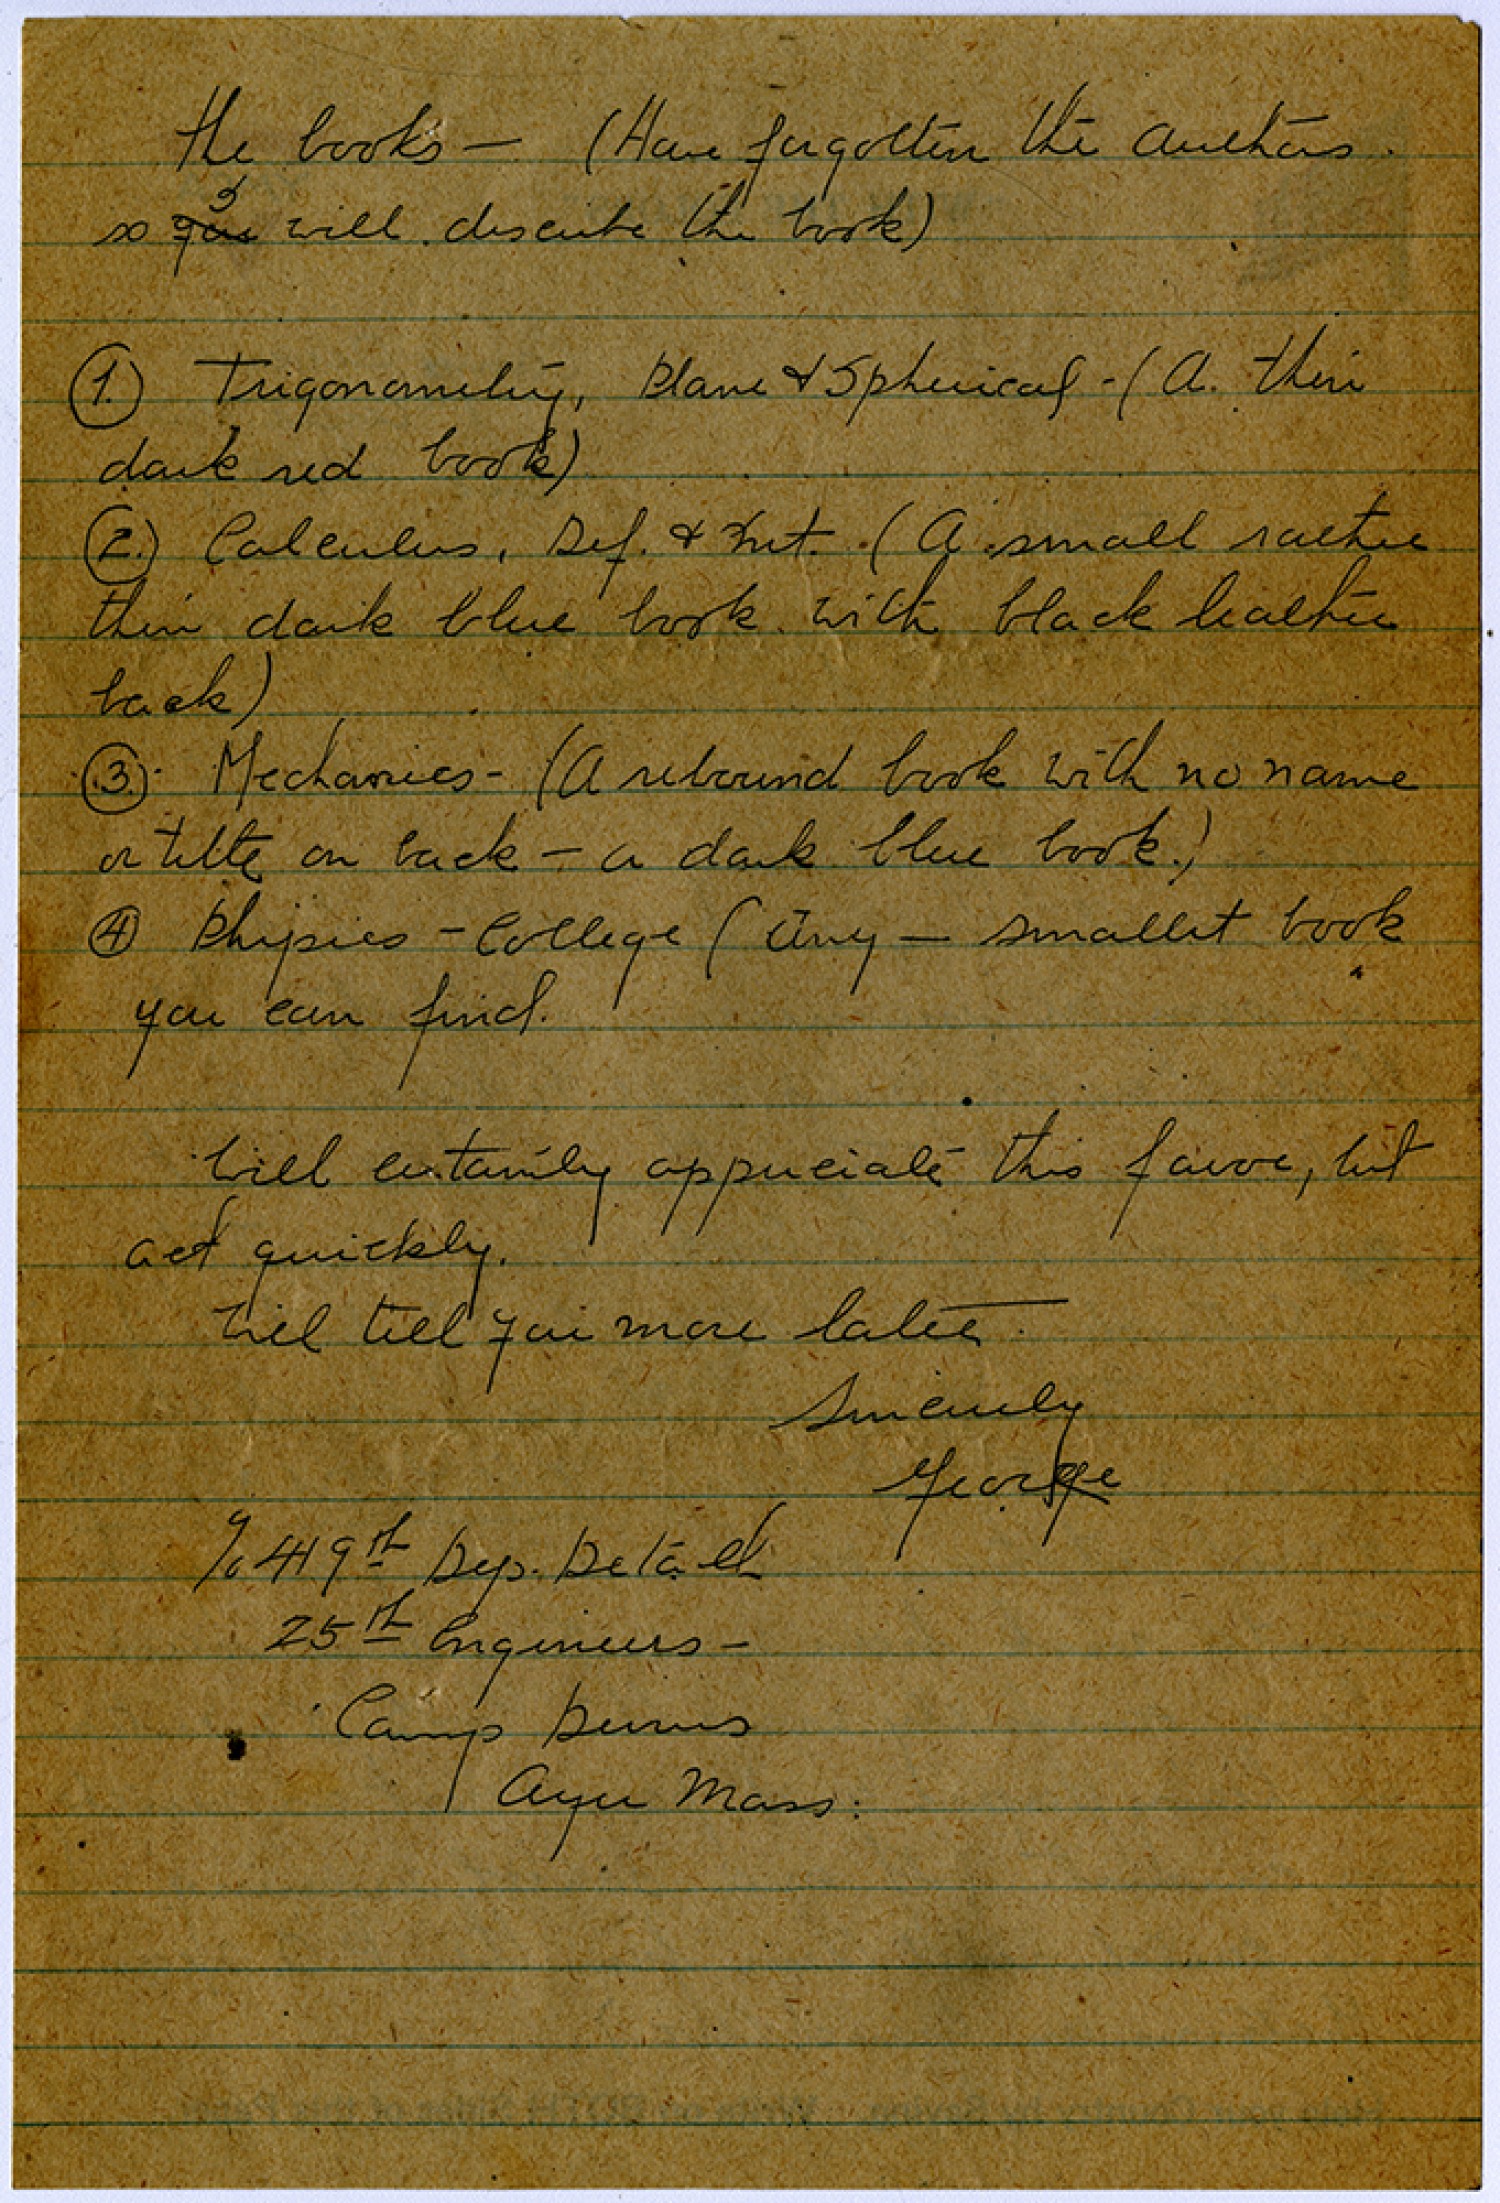 the books — (Have forgotten the authors
so I you will describe the book)
1. Trigonometry, Plane & Spherical - (A thin
dark red book)
2. Calculus, Def. & Int. (A small rather
thin dark blue book with black leather
back)
3. Mechanics - (A rebound book with no name
or title on back — a dark blue book.)
4 Physics - College (Any — smallest book
you can find.
Will certainly appreciate this favor, but
act quickly.
Will tell you more later.
Sincerely
George
% 419th Dep. Detach
25th Engineers —
Camp Devens
Ayer Mass.